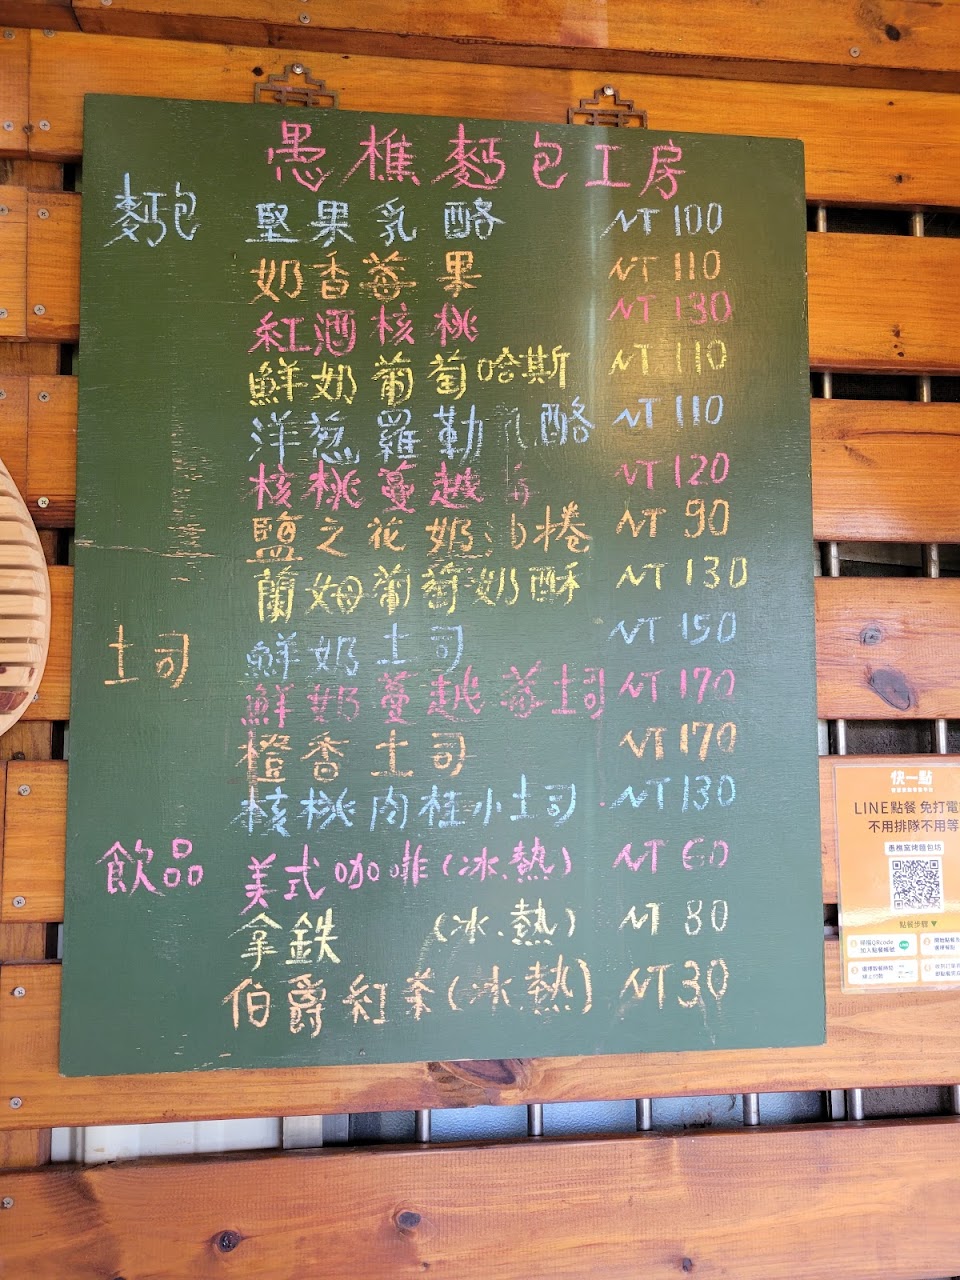 愚樵麵包工房
麵包 堅果乳酪 NT 100
奶香莓果 NT 110
紅酒核桃 NT 130
鮮奶葡萄哈斯 NT 110
洋葱羅勒乳酪 NT 110
核桃蔓越莓 NT 120
鹽之花奶油捲 NT 90
蘭姆葡萄奶酥 NT 130
土司 鮮奶土司 NT 150
鮮奶蔓越莓土司 NT 170
橙香土司 NT 170
核桃肉桂小土司 NT 130
飲品 美式咖啡(冰.熱) NT 60
拿鉄 (冰.熱) NT 80
伯爵紅茶(冰.熱) NT 30
快一點
LINE點餐 免打電
不用排隊不用等
愚樵窯烤麵包坊
點餐步驟▼